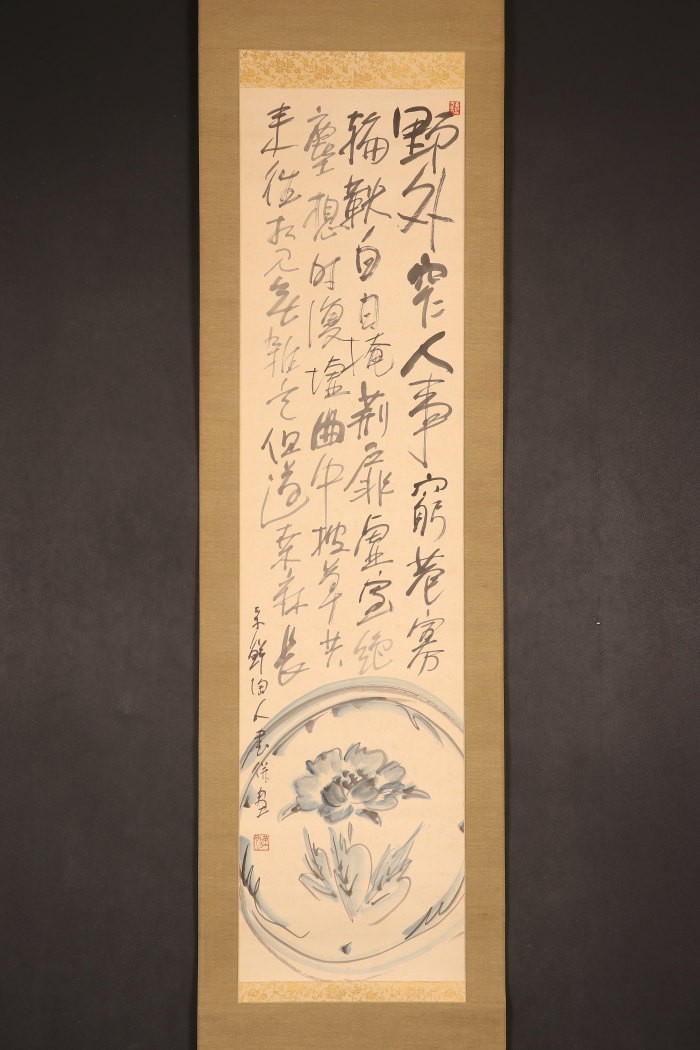 野外罕人事窮巷寡
輪鞅白日掩荊扉虚室絶
塵想时復墟曲中披草共
来往相見無雜言但道桑麻長
鮮陶人書併画